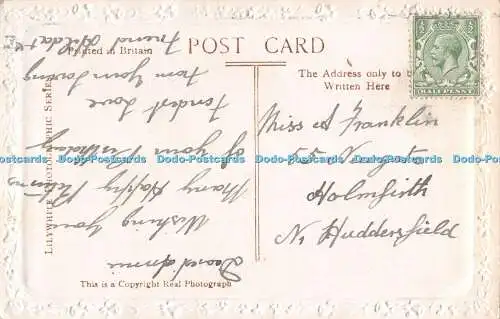 POST CARD
Printed in Britain
The Address only to b
Written Here
LILYWHITE PHOTOGRAPHIC SERIES
This is a Copyright Real Photograph
HALFPENNY
Dearest Annie
Wishing you
Many Happy Returns
of your Birthday
Fondest Love
from Your loving
Friend Hilda
Miss A Franklin
55
Holmfirth
Nr Huddersfield
Dodo-Postcards Dodo-Postcards Dodo-Postcards Dodo-Postcards Dodo-Postcards